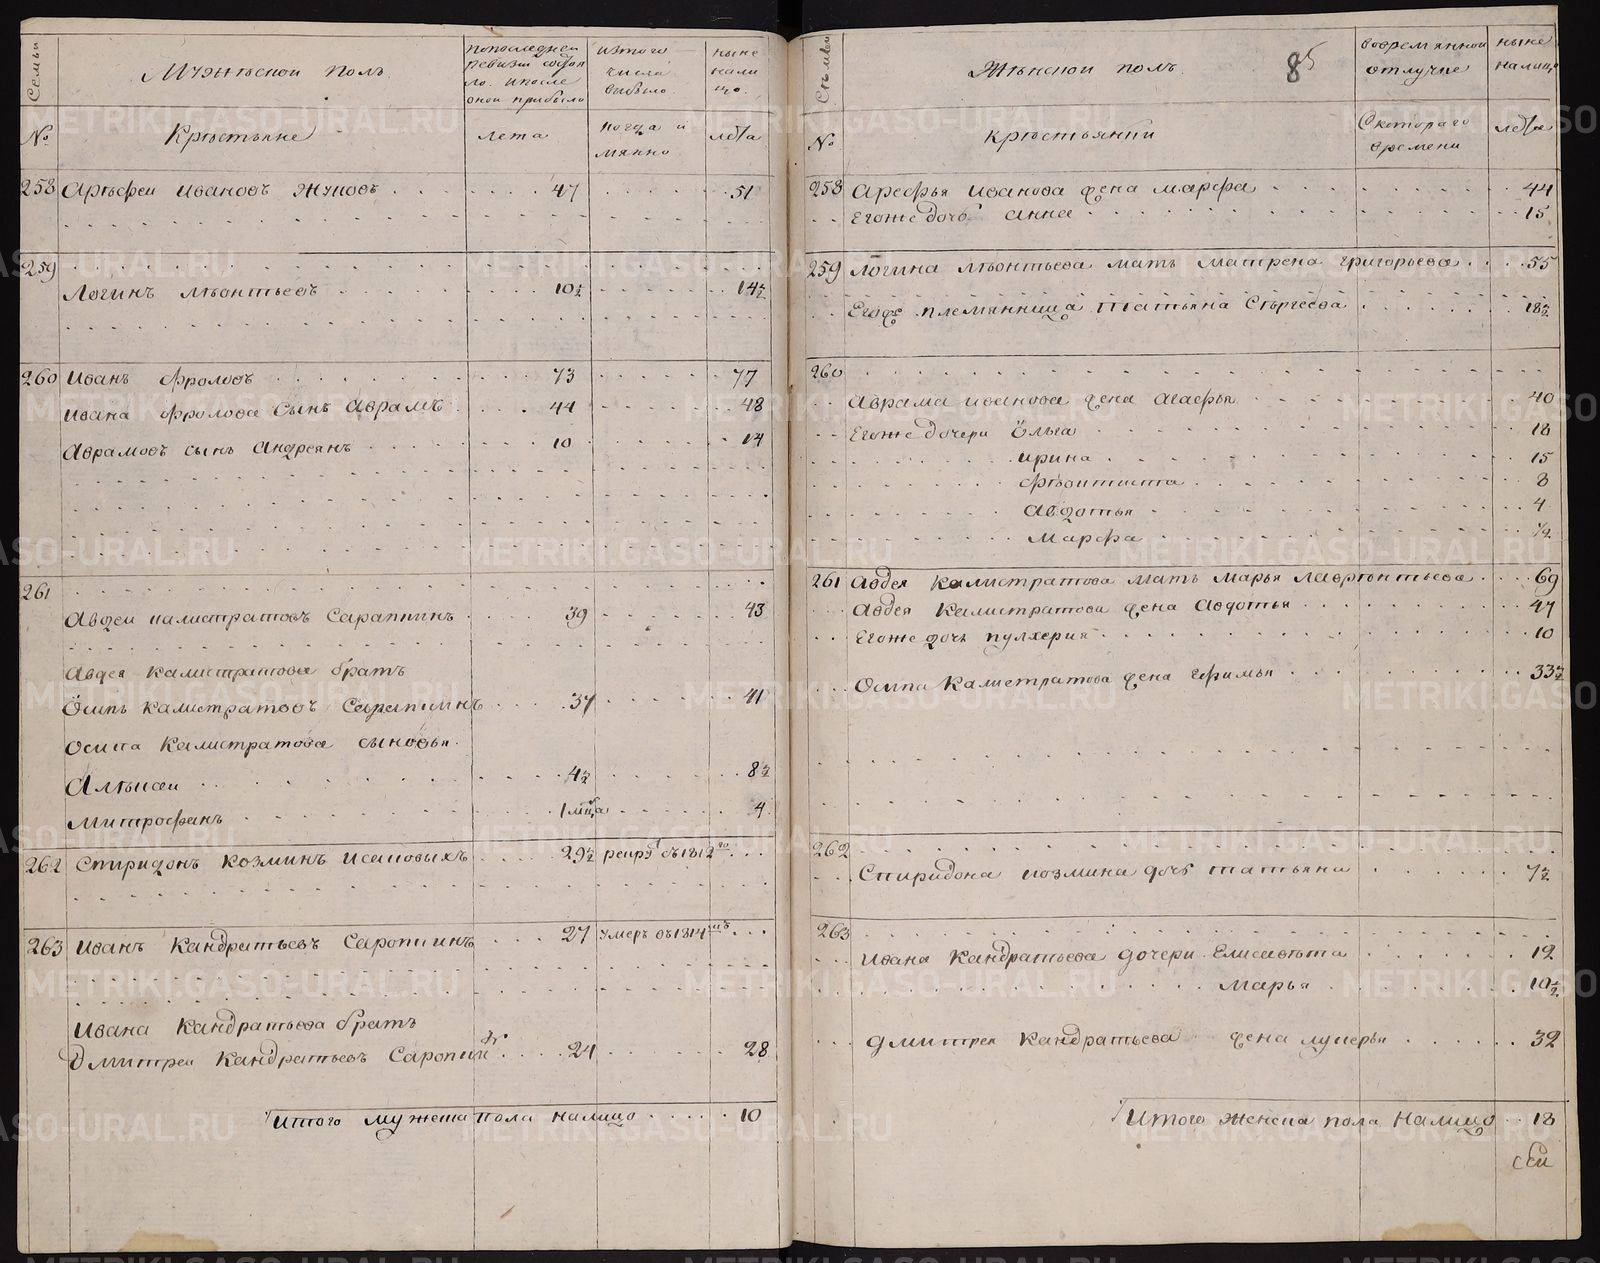 Семьи
Мужескои полъ
попоследнеи
ревизи состоя
ло ипосле
онои прибыло
изтого
числа
выбыло
ныне
нали
цо
№
Крестьяне
лета
когда и
мянно
лета
258 Арефеи Ивановъ Жуковъ 47 51
259
Логинъ Леонтьевъ 10½ 14½
260 Иванъ Фроловъ 73 77
Ивана Фролова Сынъ Аврамъ 44 48
Аврамовъ сынъ Андреянъ 10 14
261
Авдеи Калистратовъ Сарапкинъ 39 43
Авдея Калистратова братъ
Осипъ Калистратовъ Сарапкинъ 37 41
Осипа Калистратова сыновья
Алексеи 4½ 8½
Митрофанъ 1 мца 4
262 Спиридонъ Козминъ Исаковыхъ 29½ рекрут въ 1812
263 Иванъ Кандратьевъ Саропкинъ 27 умеръ въ 1814
Ивана Кандратьева братъ
Дмитреи Кандратьевъ Саропкинъ 24 28
Итого мужеска пола налицо 10
Семьи
Женскои полъ
85
вовремяннои
отлучке
ныне
налицо
№
крестьянки
Скотораго
времени
лета
258 Арефья Иванова жена Марфа 44
Егоже дочь Анна 15
259 Логина Леонтьева мать Матрена Григорьева 55
Егоже племянница Татьяна Сергеева 18½
260
Аврама Иванова жена Агафья 40
Егоже дочери Ольга 18
Ирина 15
Феоктиста 8
Авдотья 4
Марфа ½
261 Авдея Калистратова мать Марья Лаврентьева 69
Авдея Калистратова жена Авдотья 47
Егоже дочь Пулхерия 10
Осипа Калистратова жена Ефимья 33½
262
Спиридона Козмина дочь Татьяна 7½
263
Ивана Кандратьева дочери Елисавета 12
Марья 10½
Дмитрея Кандратьева жена Лукерья 32
Итого женска пола налицо 18